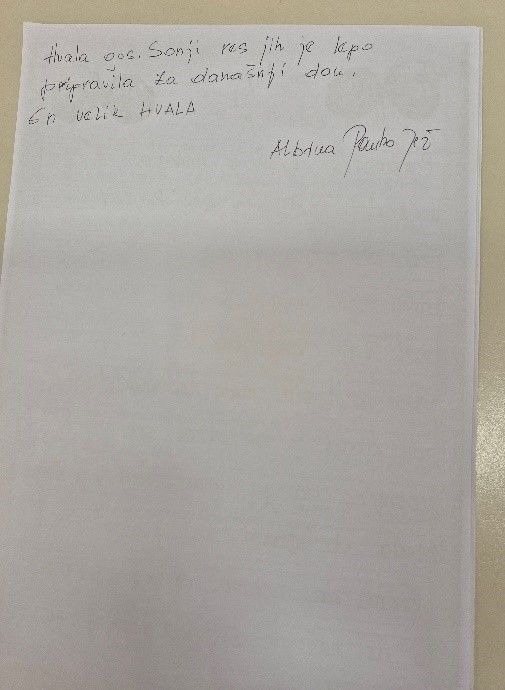 Hvala gos. Sonji res jih je lepo
pripravila za današnji dan.
En velik HVALA
Albina Jež